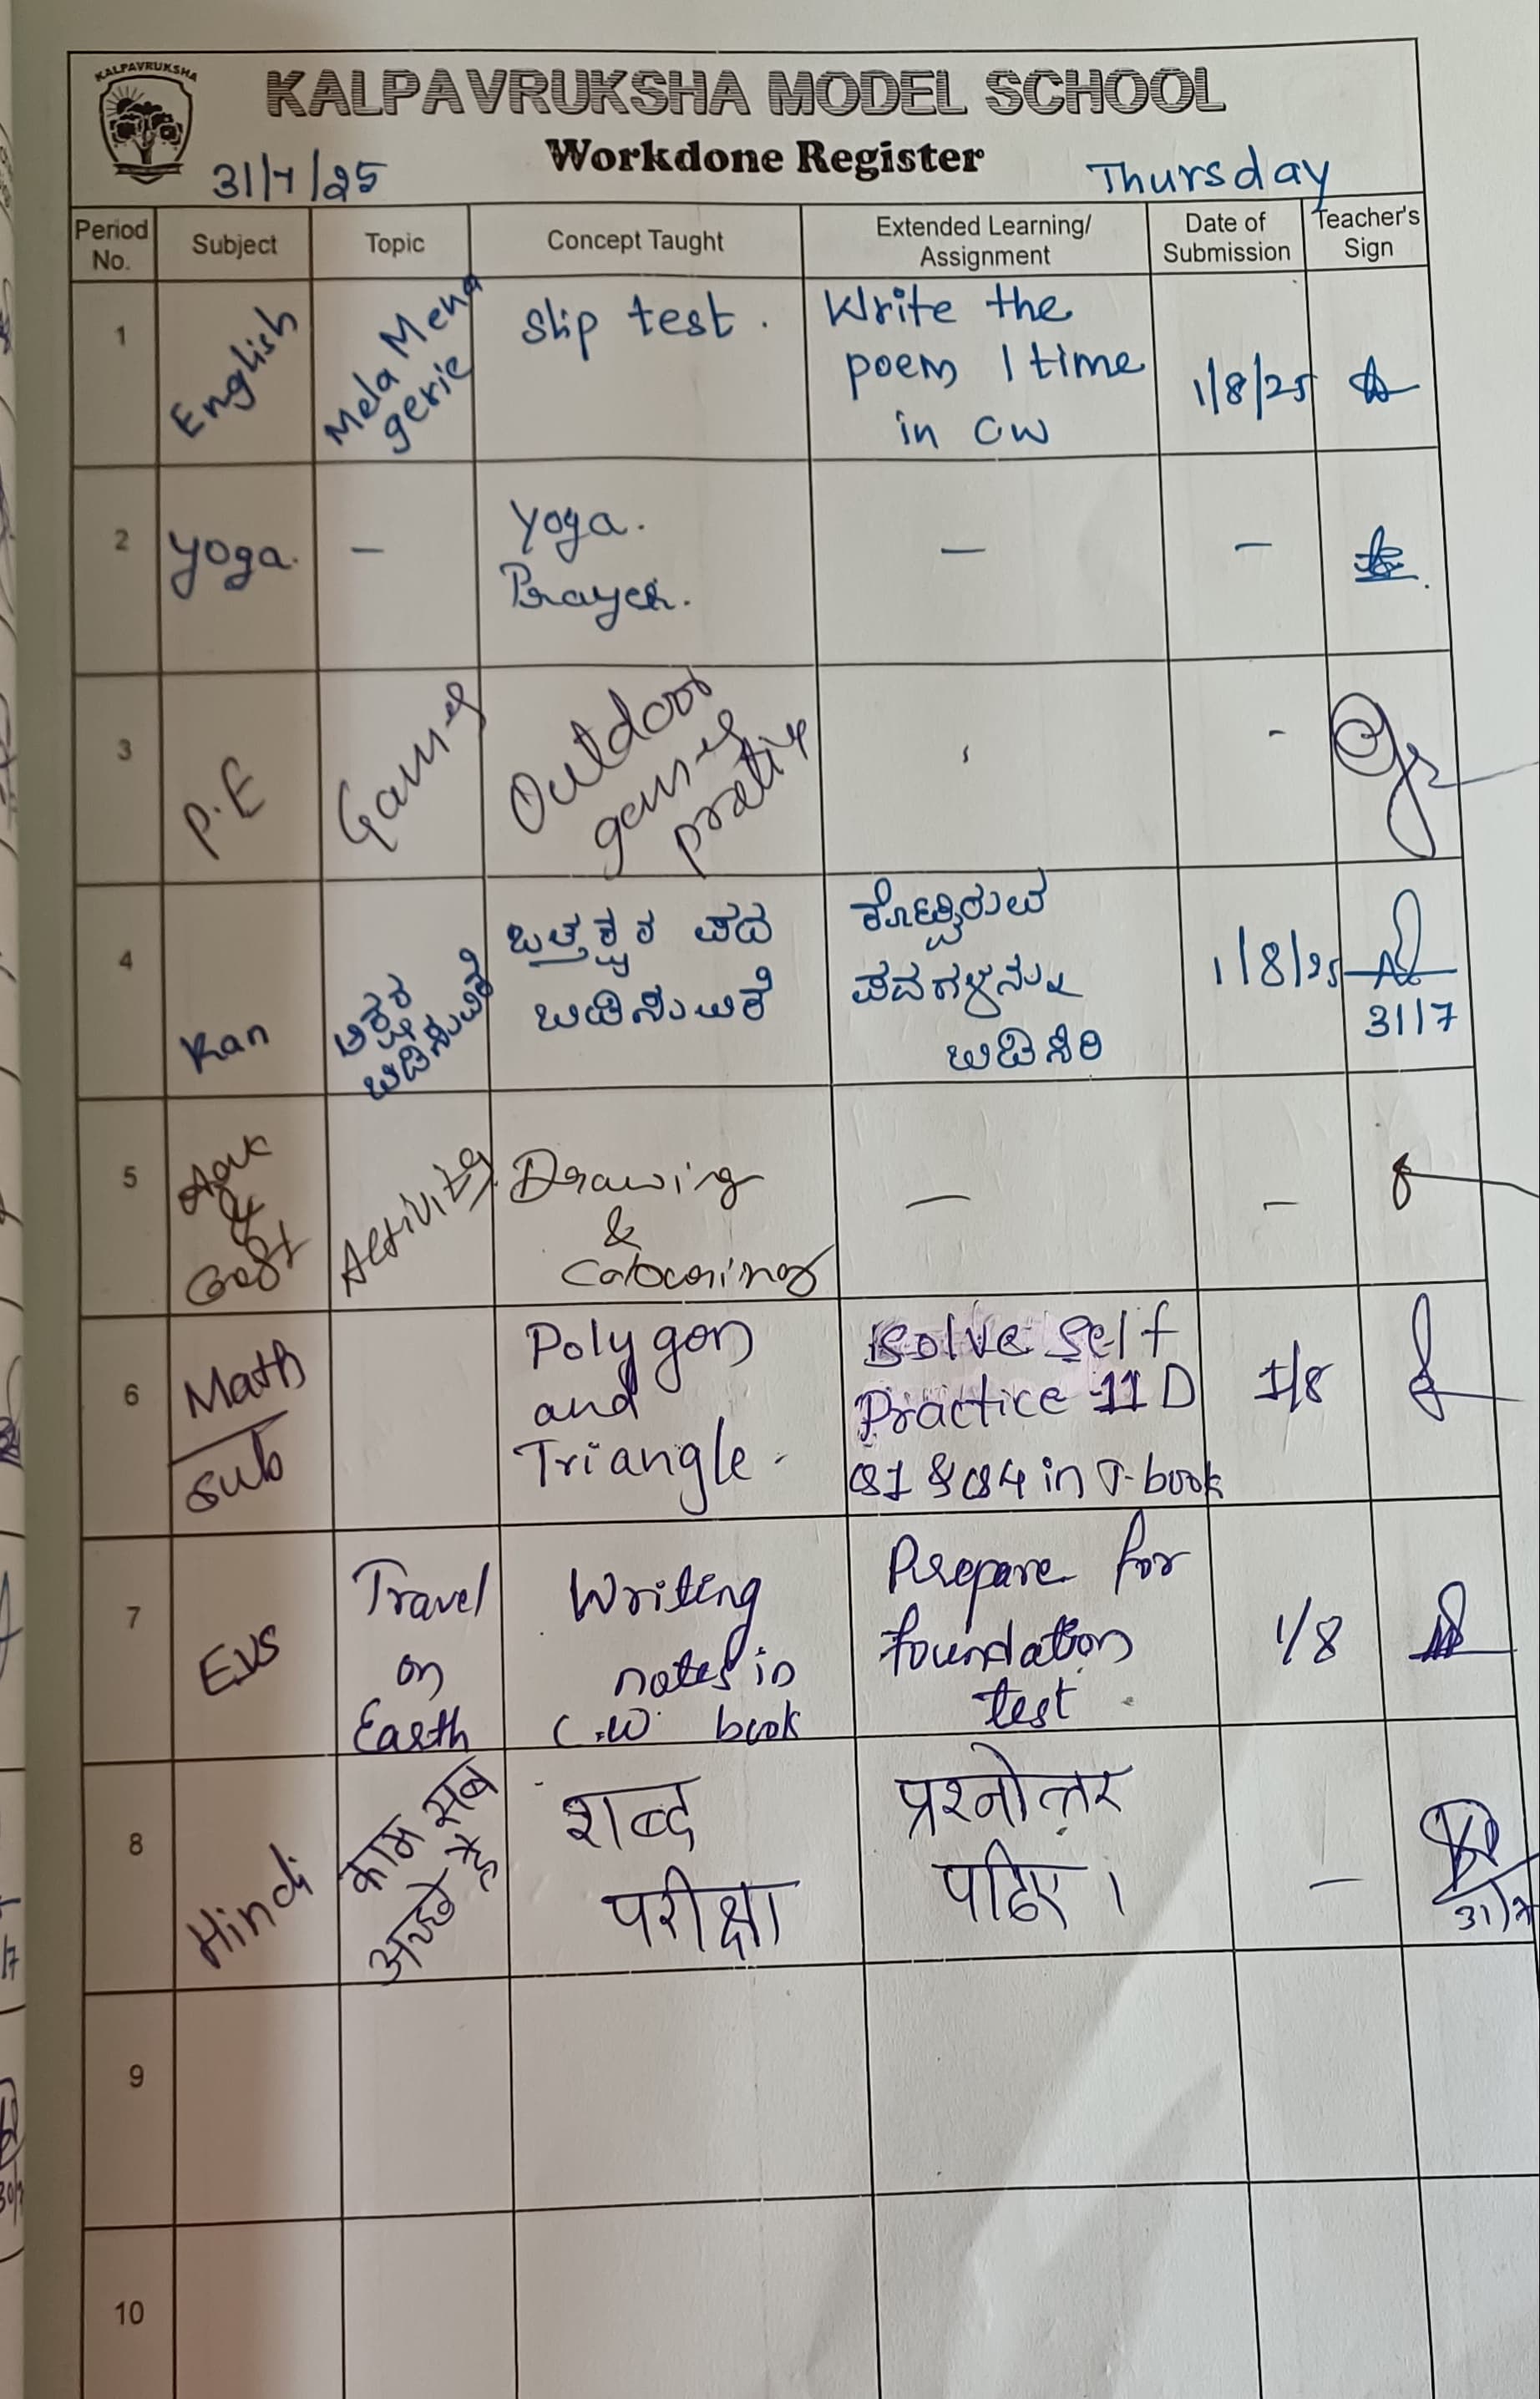 KALPAVRUKSHA
KALPAVRUKSHA MODEL SCHOOL
Workdone Register
31/7/25
Thursday
Period No.
Subject
Topic
Concept Taught
Extended Learning/
Assignment
Date of
Submission
Teacher's
Sign
1
English
Mela Mena
gerie
Slip test.
Write the
poem 1 time
in CW
1/8/25
2
Yoga.
–
Yoga.
Prayer.
–
–
3
P.E
Games
Outdoor
games
-
4
Kan
ಅಕ್ಷರ
ಬಿಡಿಸುವಿಕೆ
ಒತ್ತಕ್ಷರ ಪದ
ಬಿಡಿಸುವಿಕೆ
ಕೊಟ್ಟಿರುವ
ಪದಗಳನ್ನು
ಬಿಡಿಸಿರಿ
1/8/25
31/7
5
&
Activity
Drawing
&
–
–
6
Math
Sub
Polygon
and
Triangle.
Solve Self
Practice 11 D
Q1 & Q4 in T-book
1/8
7
EVS
Travel
on
Earth
Writing
notes in
C.W book
Prepare for
foundation
test.
1/8
8
Hindi
काम सब
अच्छे हैं
शब्द
परीक्षा
प्रश्नोत्तर
पढिए।
–
31/7
9
10